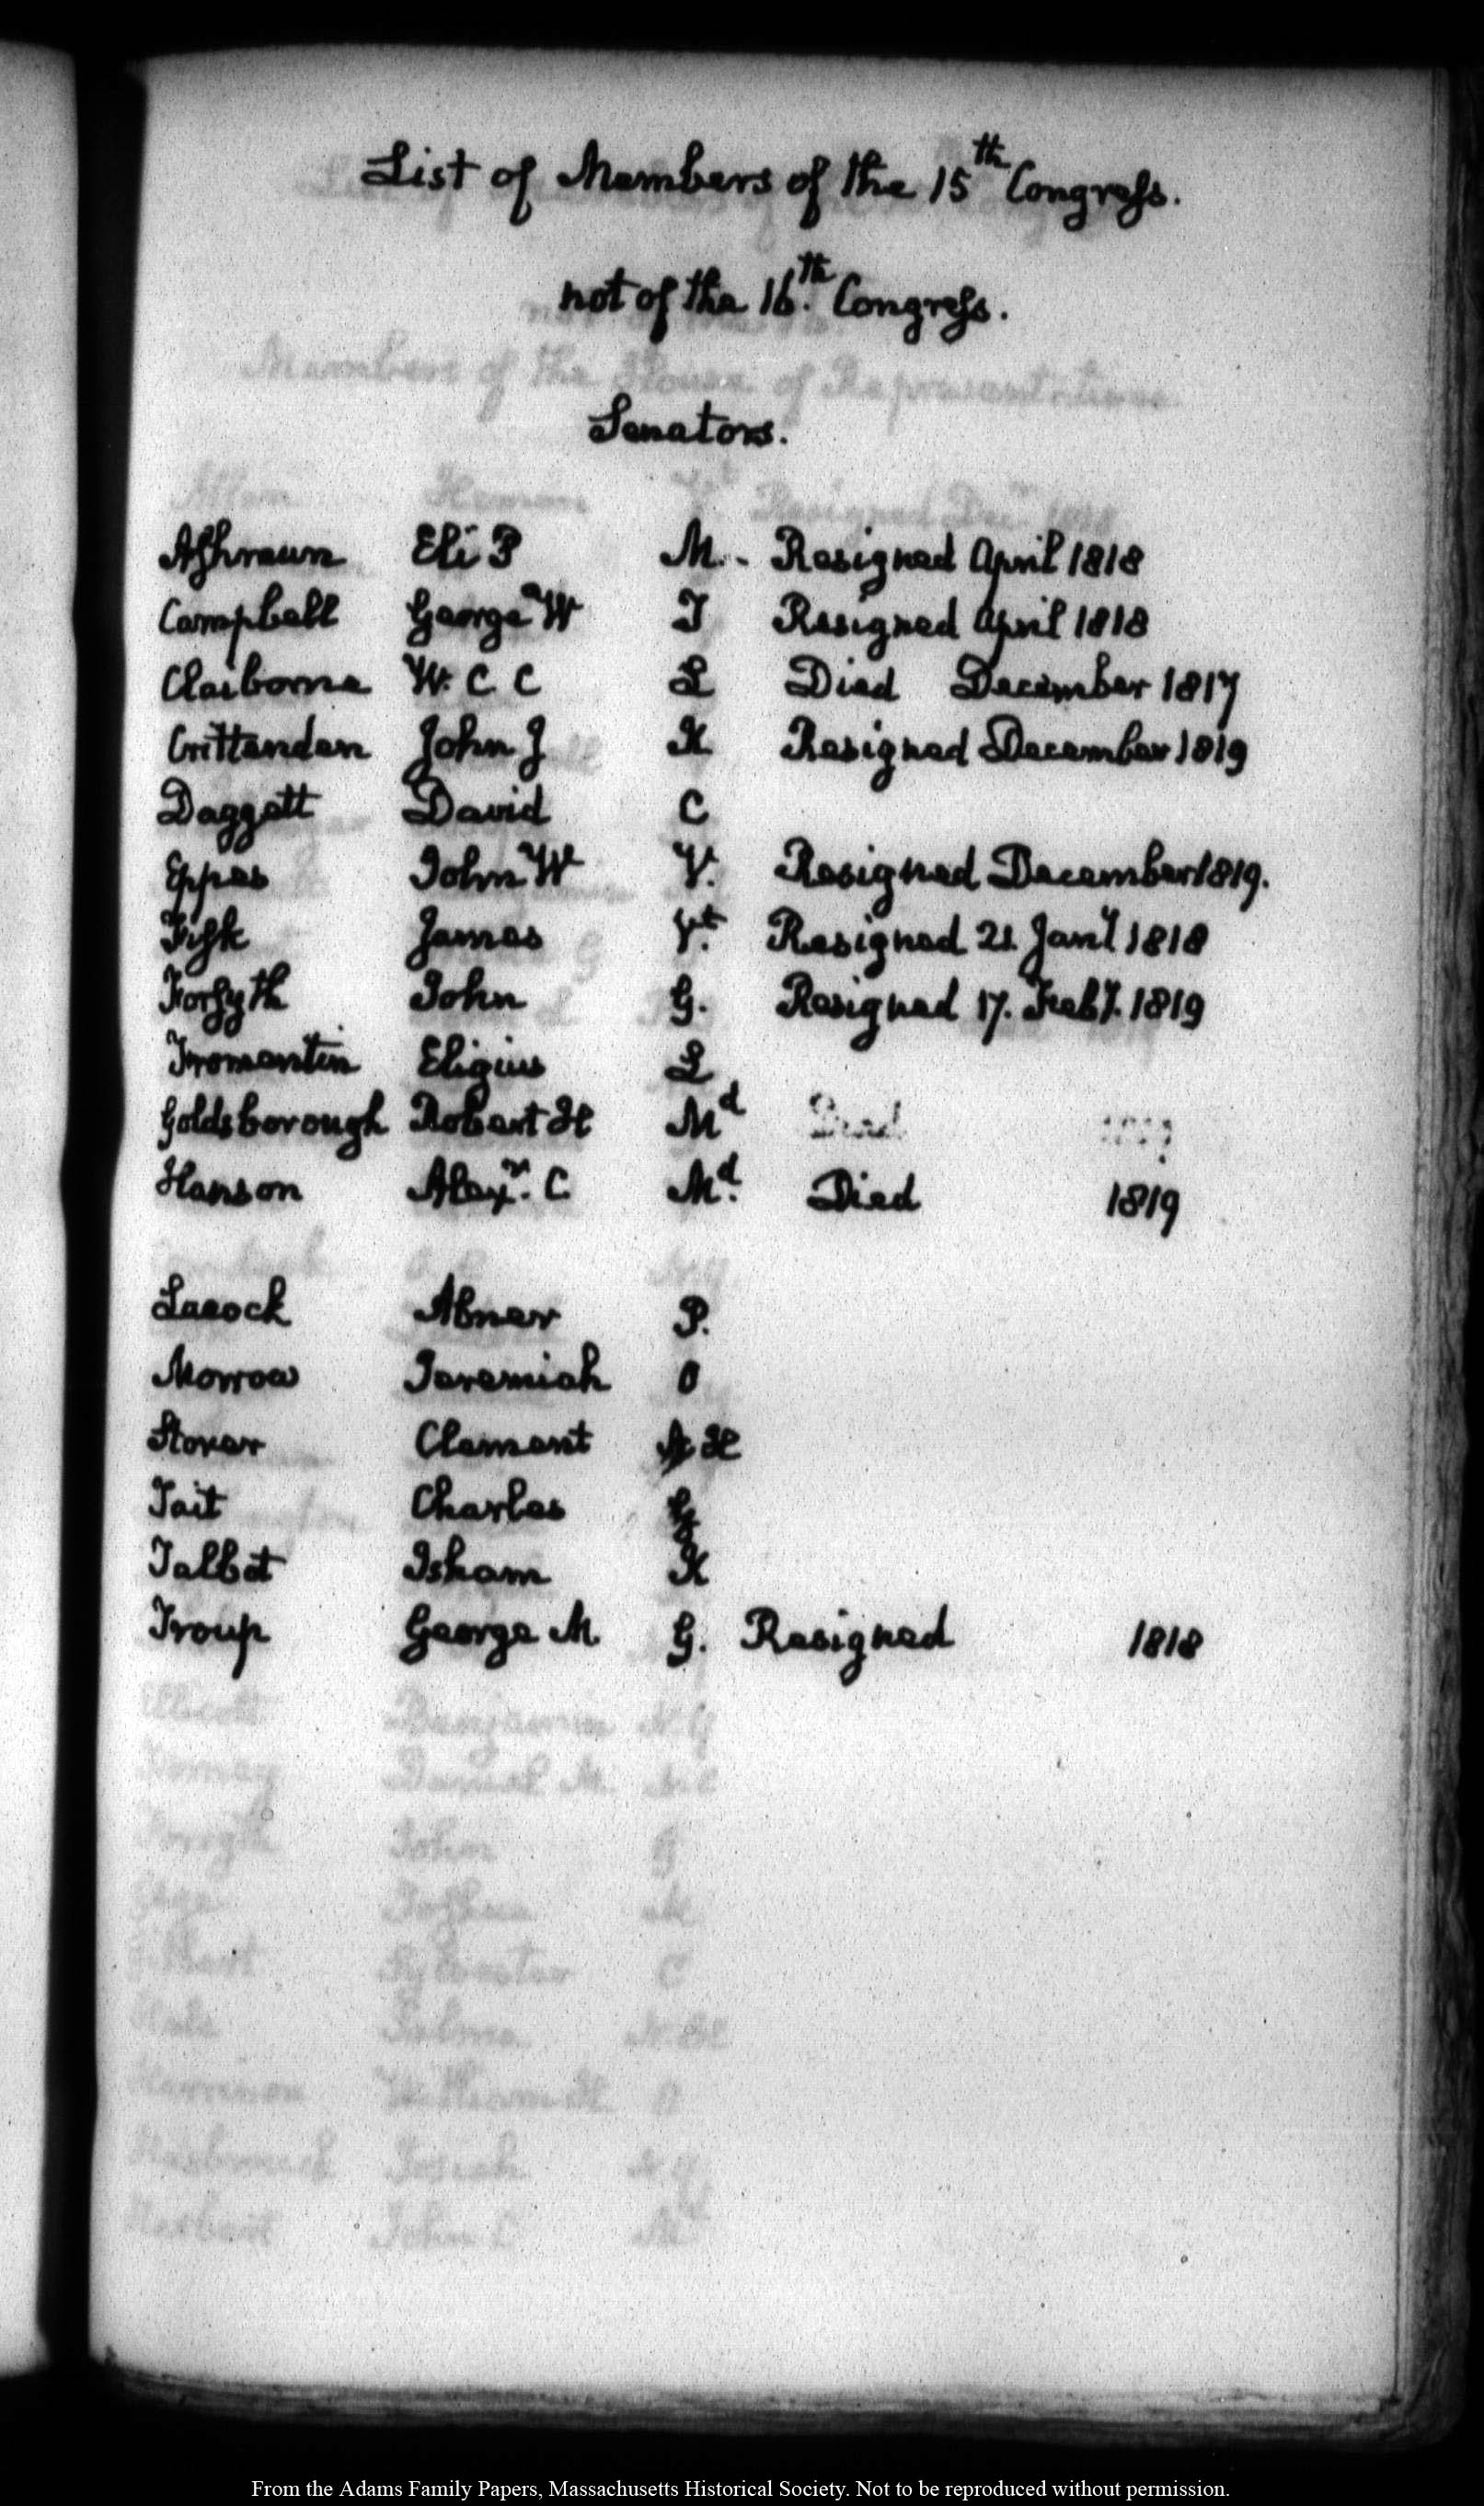 List of Members of the 15th Congress.
not of the 16th. Congress.
Senators.
Ashmun Eli P M. - Resigned April 1818
Campbell George W T Resigned April 1818
Claiborne W. C C L Died December 1817
Crittenden John J K Resigned December 1819
Daggett David C
Eppes John W V. Resigned December 1819.
Fisk James Vt. Resigned 21 Jany 1818
Forsyth John G. Resigned 17. Feby. 1819
Fromentin Eligius L
Goldsborough Robert H Md
Hanson Alexr. C. Md. Died 1819
Lacock Abner P.
Morrow Jeremiah O
Storer Clement N H
Tait Charles G
Talbot Isham K
Troup George M. G. Resigned 1818
From the Adams Family Papers, Massachusetts Historical Society. Not to be reproduced without permission.